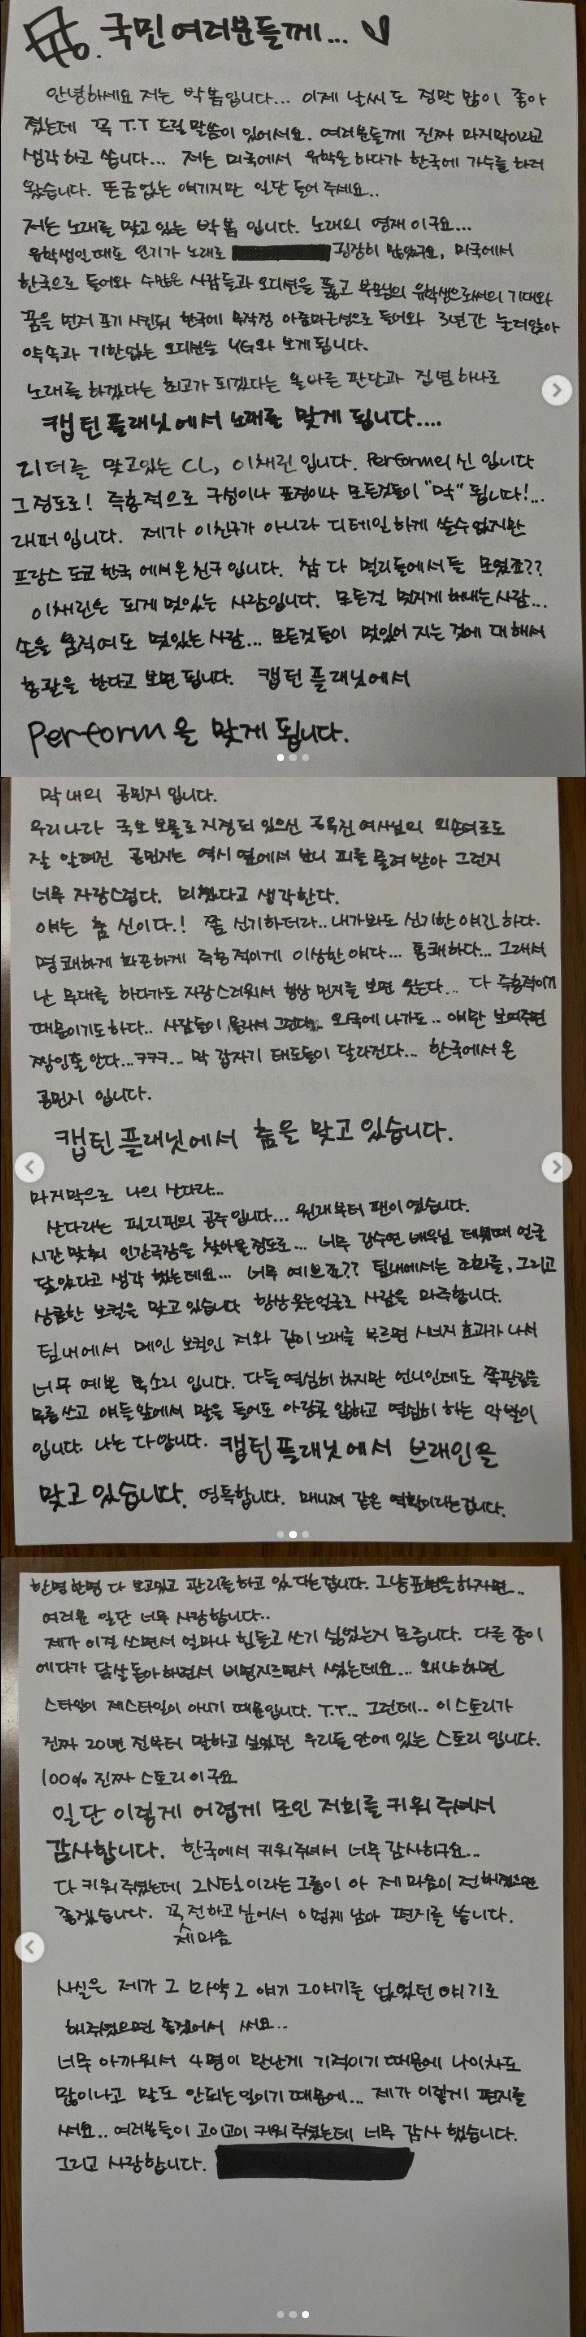 국민여러분들께...
안녕하세요 저는 박봄입니다... 이제 날씨도 정말 많이 좋아
졌는데 꼭 T.T 드릴 말씀이 있어서요. 여러분들께 진짜 마지막이라고
생각하고 씁니다... 저는 미국에서 유학을 하다가 한국에 가수를 하러
왔습니다. 뜬금없는 얘기지만 일단 들어 주세요..
저는 노래를 맞고 있는 박봄 입니다. 노래의 영재 이구요...
유학생인 때도 인기가 노래로 굉장히 많았구요, 미국에서
한국으로 들어와 수많은 사람들과 오디션을 뚫고 부모님의 유학생으로서의 기대와
꿈을 먼저 포기 시킨뒤 한국에 무작정 아줌마근성으로 들어와 3년간 눌러앉아
약속과 기한없는 오디션을 YG와 보게 됩니다.
노래를 하겠다는 최고가 되겠다는 올바른 판단과 집념 하나로
캡틴 플래닛에서 노래를 맞게 됩니다....
리더를 맞고있는 CL, 이채린 입니다. Perform의 신 입니다
그정도로! 즉흥적으로 구성이나 표정이나 모든것들이 "딱" 됩니다!...
래퍼 입니다. 제가 이친구가 아니라 디테일 하게 쓸수 없지만
프랑스 도쿄 한국 에서 온 친구 입니다. 참 다 멀리들에서들 모였죠??
이채린은 되게 멋있는 사람입니다. 모든걸 멋지게 해내는 사람...
손을 움직여도 멋있는 사람... 모든것들이 멋있어 지는 것에 대해서
총괄을 한다고 보면 됩니다. 캡틴 플래닛에서
Perform을 맞게 됩니다.
막내의 공민지 입니다.
우리나라 국보 보물로 지정되 있으신 공옥진 여사님의 외손녀로도
잘 알려진 공민지는 역시 옆에서 보니 피를 물려 받아 그런지
너무 자랑스럽다. 미쳤다고 생각한다.
얘는 춤 신이다.! 쫌 신기하더라.. 내가봐도 신기한 얘긴 하다.
명쾌하게 화끈하게 즉흥적이게 이상한 얘다... 통쾌하다... 그래서
난 무대를 하다가도 자랑스러워서 항상 민지를 보면 웃는다... 다 즉흥적이기
때문이기도 하다.. 사람들이 몰라서 그런다... 외국에 나가도.. 얘만 보여주면
짱인줄 안다...ㅋㅋㅋ... 막 갑자기 태도들이 달라진다... 한국에서 온
공민지 입니다.
캡틴 플래닛에서 춤을 맞고 있습니다.
마지막으로 나의 산다라...
산다라는 필리핀의 공주 입니다... 원래부터 팬이 였습니다.
시간 맞춰 인간극장을 찾아볼 정도로... 너무 강수연 배우님 데뷔때 얼굴
닮았다고 생각 했는데요... 너무 예쁘죠?? 팀내에서는 조화를, 그리고
상큼한 보컬을 맞고 있습니다 항상 웃는얼굴로 사람을 마주합니다.
팀내에서 메인 보컬인 저와 같이 노래를 부르면 시너지 효과가 나서
너무 예쁜 목소리 입니다. 다들 열심히 하지만 언니인데도 쪽팔림을
무릅쓰고 얘들 앞에서 말을 들어도 아랑곳 않하고 열심히 하는 악발이
입니다. 나는 다 압니다. 캡틴플래닛에서 브레인을
맞고 있습니다. 영특합니다. 매니져 같은 역할이라는겁니다.
한명한명 다 보고있고 관리를 하고 있다는 겁니다. 그냥 표현을 하자면...
여러분 일단 너무 사랑합니다..
제가 이걸 쓰면서 얼마나 힘들고 쓰기 싫었는지 모릅니다. 다른 종이
에다가 닭살돋아 하면서 비명지르면서 썼는데요... 왜냐하면
스타일이 제스타일이 아니기 때문입니다. T.T... 그런데.. 이 스토리가
진짜 20년 전부터 말하고 싶었던 우리들 안에 있는 스토리 입니다.
100% 진짜 스토리이구요
일단 이렇게 어렵게 모인 저희를 키워 주셔서
감사합니다. 한국에서 키워주셔서 너무 감사하구요...
다 키워 주셨는데 2NE1 이라는 그룹이 아 제 마음이 전해졌으면
좋겠습니다. 꼭 전하고 싶어서 이렇게 남아 편지를 씁니다.
제마음
사실은 제가 그 마약 그 얘기 그 이야기를 없었던 얘기로
해주셨으면 좋겠어서 써요..
너무 아까워서 4명이 만난게 기적이기 때문에 나이차도
많이나고 말도 안되는 일이기 때문에... 제가 이렇게 편지를
써요.. 여러분들이 고이고이 키워 주셨는데 너무 감사 했습니다.
그리고 사랑합니다.